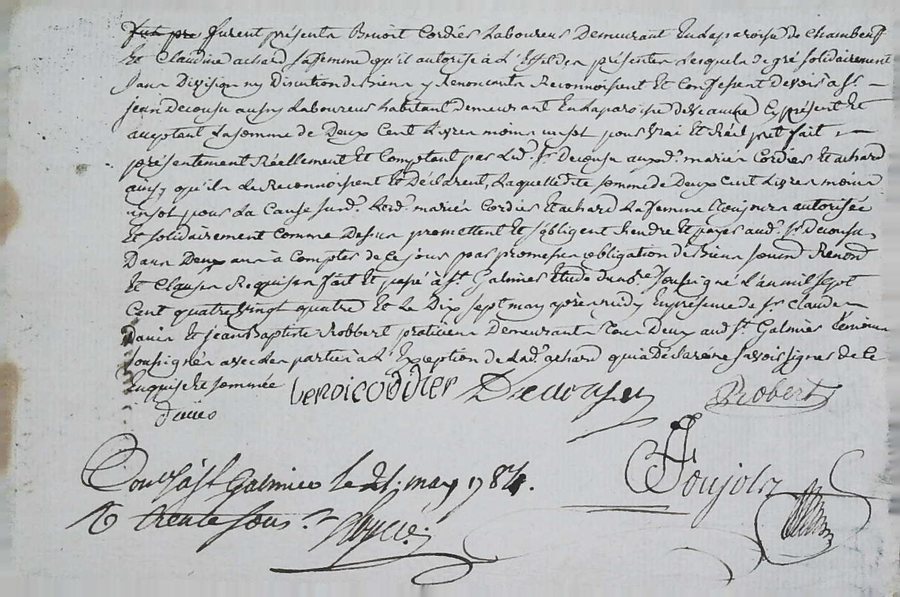 furent présents Benoit Cordier Laboureur Demeurant En La paroisse de Chambeuf
Et Claudine achard Sa femme qu'il autorise à L'Effet des présentes Lesquels de gré solidairement
Sans Division ny Discution de Biens y Renoncents Reconnoissent Et Confessent Devoir a Sr
Jean Decousu aussy Laboureur habitant demeurant En La paroisse de Veauche Cy présent Et
acceptant La somme de Deux Cent Livres moins un sot pour vrai Et Réel pret fait
présentement Réellement Et Comptant par Led. Sr Decousu auxd. mariés Cordier Et achard
ainsy qu'ils Le Reconnoissent Et Déclarent, Laquelle dite somme de Deux Cent Livres moins
un sot pour La Cause susd. Lesd. mariés Cordier Et achard La femme toujours autorisée
Et solidairement Comme Dessus promettent Et s'obligent Rendre Et payer aud. Sr decousu
Dans Deux ans a Compter de Ce jour par promesse obligation de Biens soumis Renond
Et Clauses Requises fait Et passé à St. Galmier Etude du nore soussigné L'an mil sept
Cent quatre vingt quatre Et Le Dix sept may après midy En présence de Sr Claude
Davier Et Jean Baptiste Robbert praticiens Demeurants Tous Deux aud. St Galmier témoins
soussignés avec Les parties a L'Exception de Lad. achard qui a Déclaré ne savoir signer de Ce
Enquise Et sommée
Decousu
Robert
Ponjols
Conlé à St Galmier le 21. may 1784.
R. trente sous.